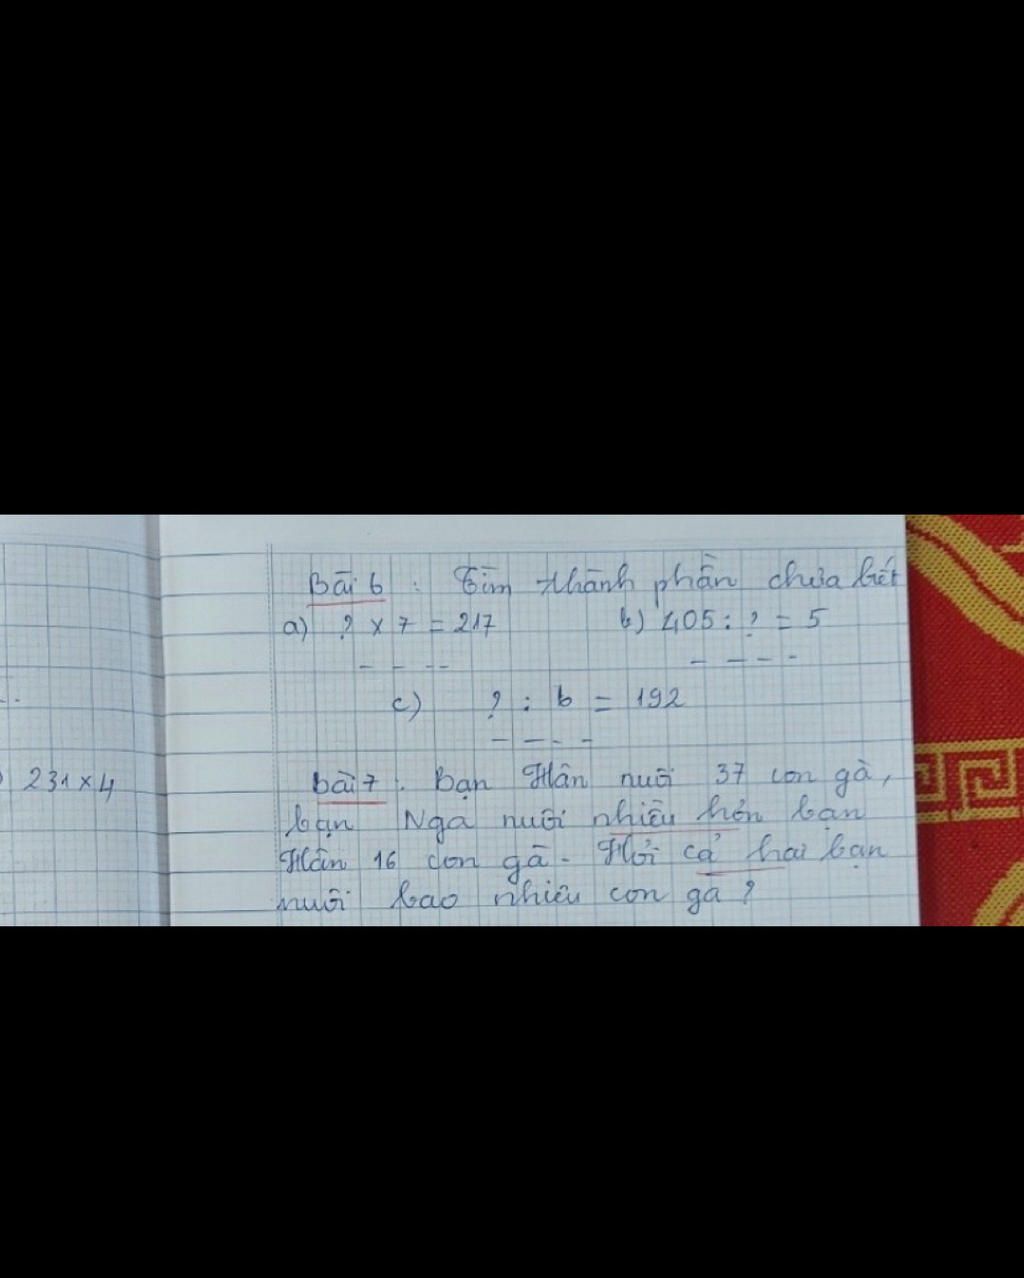 Bài 6 : Tìm thành phần chưa biết
a) ? x 7 = 217 b) 405 : ? = 5
c) ? : 6 = 192
231 x 4
Bài 7 : Bạn Hân nuôi 37 con gà,
bạn Nga nuôi nhiều hơn bạn
Hân 16 con gà. Hỏi cả hai bạn
nuôi bao nhiêu con gà ?